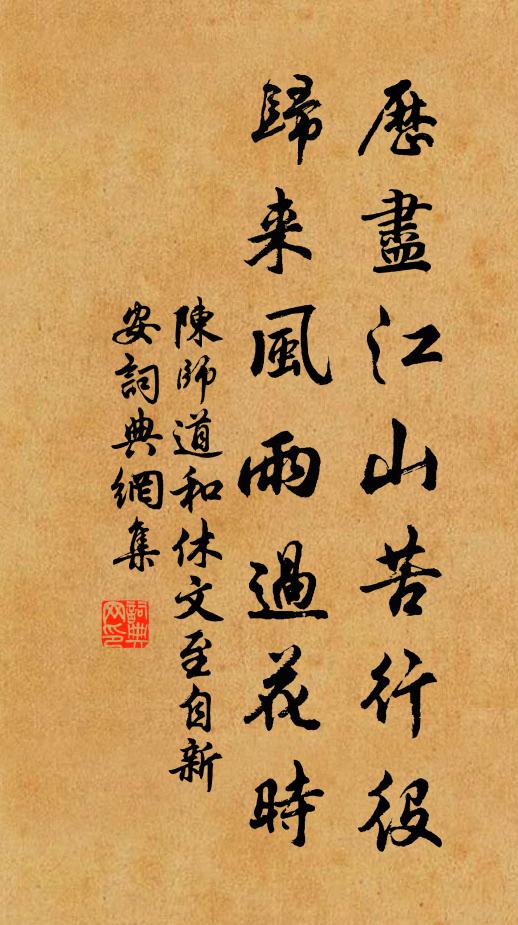 歷盡江山苦行役
歸来風雨過花時
陳師道和休文至自新
安詞典網集
詞典
网印